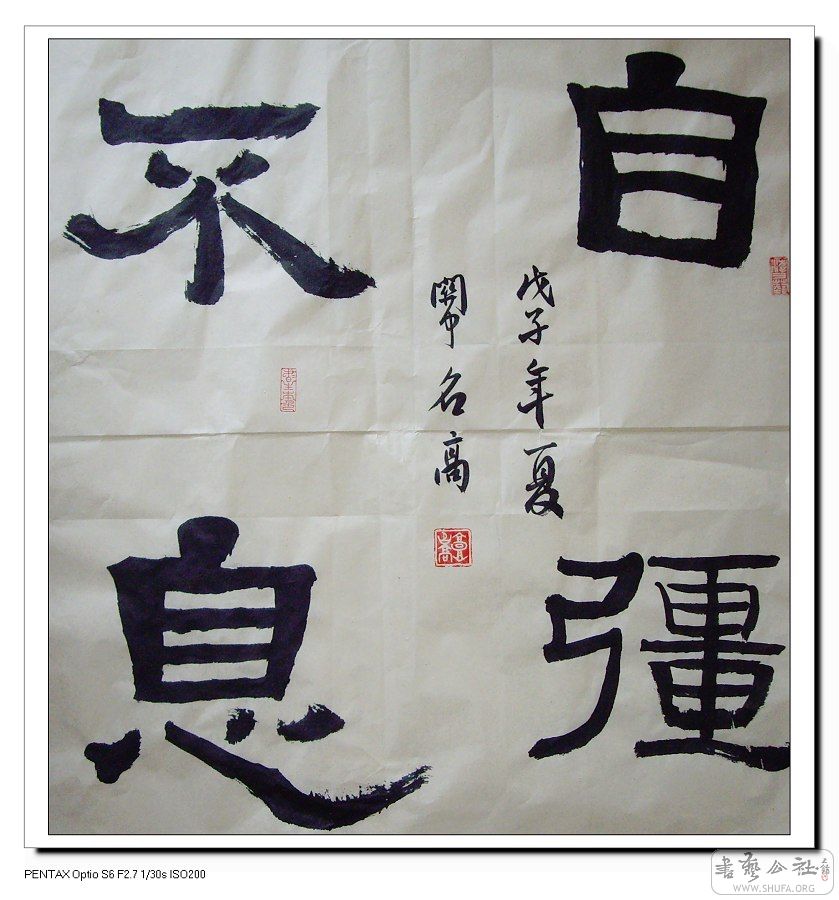 自彊
不息
戊子年夏
關中名高
PENTAX Optio S6 F2.7 1/30s ISO200
書藝公社
WWW.SHUFA.ORG